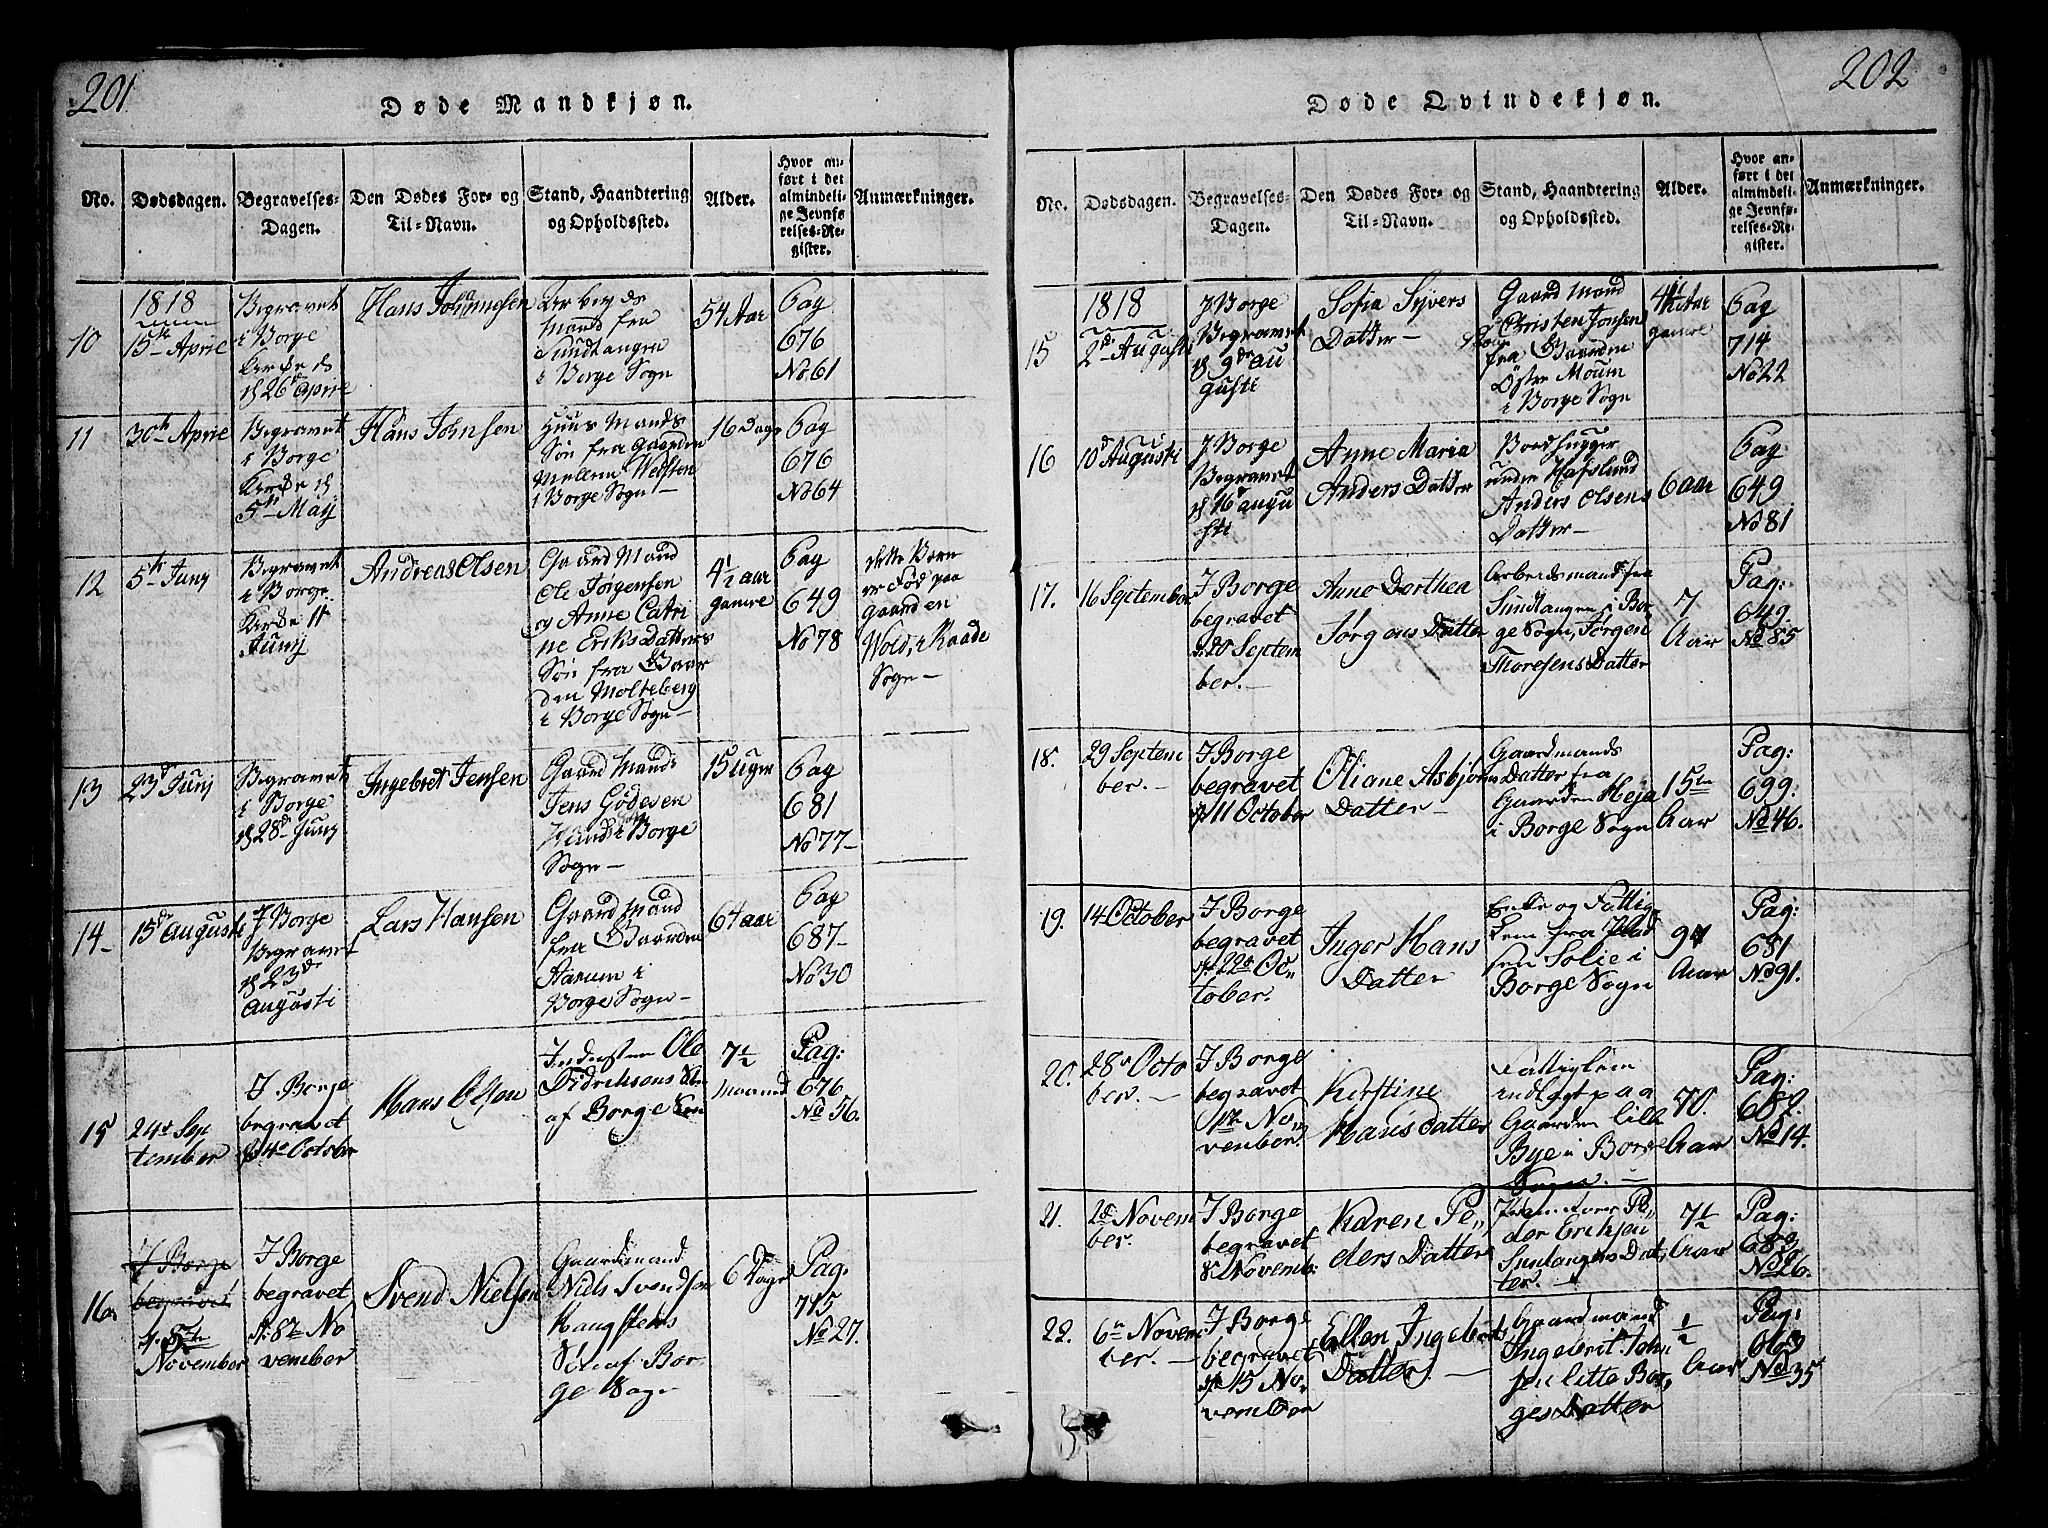 201
Døde Mandkjøn.
No.
Dødsdagen.
Begravelses-
Dagen.
Den Dødes For- og
Til-Navn.
Stand, Haandtering
og Opholdssted.
Alder.
Hvor an-
ført i det
almindeli-
ge Jevnfø-
relses-Re-
gister.
Anmærkninger.
10
1818
15de Aprie
Begravet
i Borge
Kirke
d 26de Aprie
Hans Johannesen
Arbeyds
Mand fra
Sundtangen
i Borge Sogn
54 Aar
Pag
676
No 61
11
30th Aprie
Begravet
i Borge
Kirke d
5te May
Hans Johnsen
Huus Mands
Søn fra Gaarden
Mellem
i Borge Sogn
16 Dage
Pag
676
No 64
12
5te Junj
Begravet
i Borge
Kirke 11
Junj
Andreas Olsen
Gaard Mand
Ole Jørgensen
og Anne Catri
ne Eriks Datters
Søn fra Gaar
den Molteberg
i Borge Sogn
4½ aar
gamle
Pag
649
No 78
dette Barn
er Fød paa
gaarden
Wold, i Raade
Sogn
13
23de Junj
Begravet
i Borge
d 28de Junj
Ingebret Jensen
Gaard Mand
Jens Gødesen
Hunds i Borge
Sogn
15 Uger
Pag
681
No 77
14
15de Augusti
J Borge
Begravet
d 23de
Augusti
Lars Hansen
Gaard Mand
fra Gaarden
Aarum i
Borge Sogn
64 aar
Pag
687
No 30
15
24de Sep
tember
I Borge
begravet
d 4de October
Hans Olsen
Inderster Ole
Didriksens
af Borge
7½
Maaned
Pag:
676
No 56.
16
I Borge
begravet
d. 8de
November
I Borge
begravet
d. 8de No
vember
Svend Nielsen
Gaardmand
Niels Svendsen
Haugstens
Søn af Bor-
ge Sogn
6 Dage
Pag:
715
No 27.
202
Døde Qvindekjøn.
No.
Dødsdagen.
Begravelses-
Dagen.
Den Dødes For- og
Til-Navn.
Stand, Haandtering
og Opholdssted.
Alder.
Hvor an-
ført i det
almindeli-
ge Jevnfø-
relses-Re-
gister.
Anmærkninger.
15
1818
2de Augusti
J Borge
Begravet
d 9de Au
gusti
Sofia Syvers
Datter
Gaard Mand
Christen Jonsen
fra Gaarden
Østre Moum
i Borge Sogn
Aar
gamle
Pag
714
No 22
16
10de Augusti
J Borge
Begravet
d 16 augu
sti
Anne Maria
Anders Datter
Bordhugger
under Hafslund
Anders Olsens
Datter
6 aar
Pag
649
No 81
17.
16 September
I Borge
begravet
d. 20 Septem
ber.
Anne Dorthea
Jørgens Datter
Arbeidsmand fra
Sundtangen i Bor
ge Sogn, Jørgen
Thoresens Datter
7
Aar
Pag:
649.
No 85
18.
29 Septem
ber.
I Borge
begravet
d 11 October
Oliane Asbjørns
Datter
Gaardmands
Datter fra
Gaarden Heja
i Borge Sogn
15ten
Aar
Pag:
699.
No 46.
19.
14 October
I Borge
begravet
d. 22de Oc-
tober.
Inger Hans
Datter
Enke og Fattig
Lem fra Plad
sen Solie i
Borge Sogn
Aar
Pag:
681
No 91.
20.
28de Octo
ber.
I Borge
begravet
1ste No-
vember.
Kirstine
Hansdatter
Fattiglem
indlagt paa
Gaarden Lille
Bye i Borge
Sogn.
70.
Aar
Pag:
682.
No 14.
21.
2de Novem
ber.
I Borge
begravet
8de Novemb:
Karen Pe-
ders Datter
Pe-
der Eriksen
Sundtangens Dat,
ter.
7½
Aar
Pag:
No 26.
22.
6te Novem
ber.
I Borge
begravet
d. 15 No-
vember
Ellen Ingebrets
Datter.
Gaardmand
Ingebrit John
sen litte Bor,
ges Datter
½
Aar
Pag:
No 35